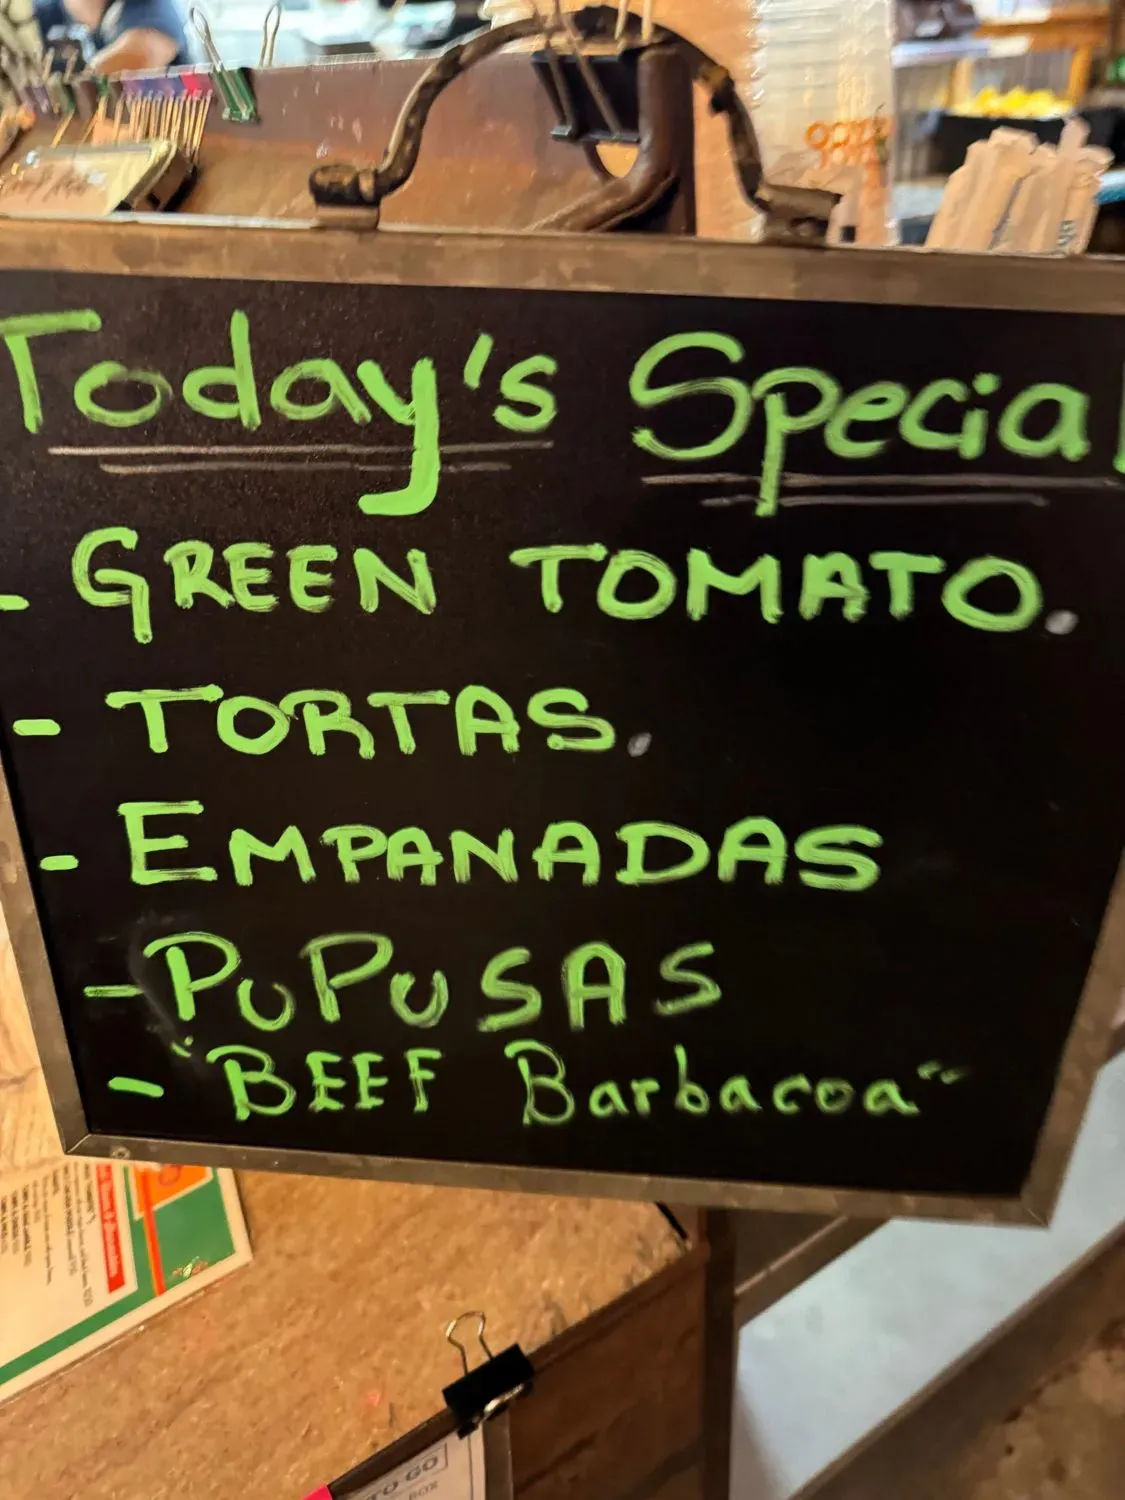 Today's Special
- GREEN TOMATO.
- TORTAS.
- EMPANADAS
- PUPUSAS
- "BEEF Barbacoa"
TO-GO
BOX